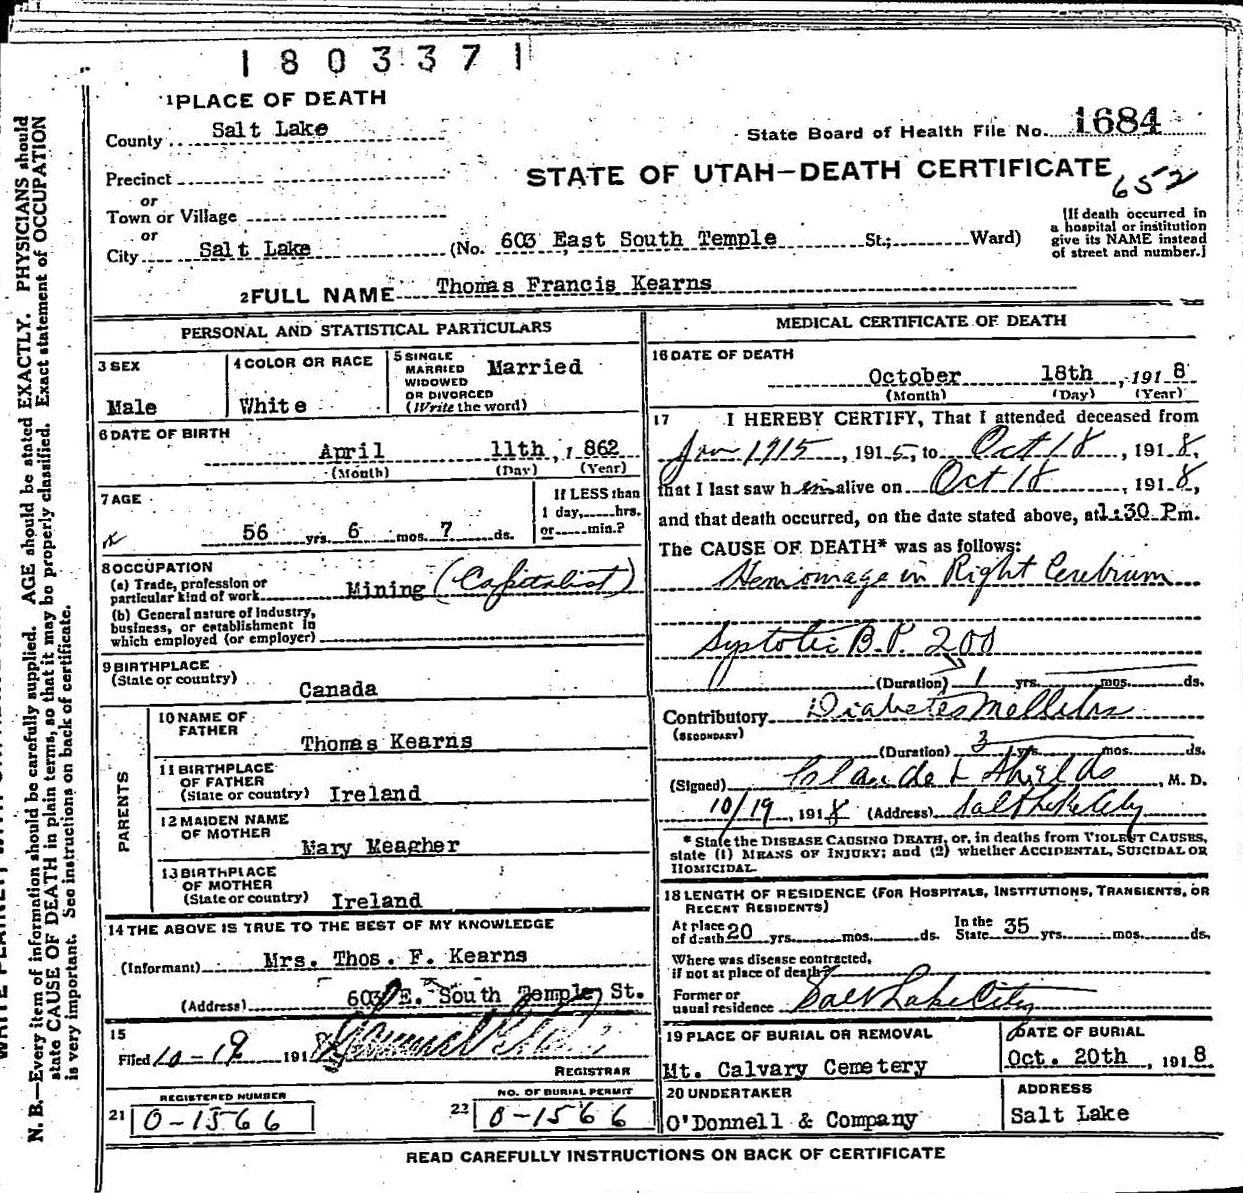 1803371
1 PLACE OF DEATH
County Salt Lake
State Board of Health File No. 1684
Precinct
STATE OF UTAH—DEATH CERTIFICATE
652
or
Town or Village
or
City Salt Lake (No. 603 East South Temple St.; Ward)
[If death occurred in
a hospital or institution
give its NAME instead
of street and number.]
2 FULL NAME Thomas Francis Kearns
PERSONAL AND STATISTICAL PARTICULARS
3 SEX
Male
4 COLOR OR RACE
White
5 SINGLE
MARRIED
WIDOWED
OR DIVORCED
(Write the word)
Married
6 DATE OF BIRTH
April 11th, 1862
(Month) (Day) (Year)
7 AGE
56 yrs. 6 mos. 7 ds.
If LESS than
1 day, hrs.
or min.?
8 OCCUPATION
(a) Trade, profession or
particular kind of work Mining (Capitalist)
(b) General nature of industry,
business, or establishment in
which employed (or employer)
9 BIRTHPLACE
(State or country)
Canada
PARENTS
10 NAME OF
FATHER
Thomas Kearns
11 BIRTHPLACE
OF FATHER
(State or country) Ireland
12 MAIDEN NAME
OF MOTHER
Mary Meagher
13 BIRTHPLACE
OF MOTHER
(State or country) Ireland
14 THE ABOVE IS TRUE TO THE BEST OF MY KNOWLEDGE
(Informant) Mrs. Thos. F. Kearns
(Address) 603 E. South Temple St.
15
Filed 10-19 1918
REGISTRAR
REGISTERED NUMBER
21 0-1566
NO. OF BURIAL PERMIT
22 0-1566
MEDICAL CERTIFICATE OF DEATH
16 DATE OF DEATH
October 18th, 1918
(Month) (Day) (Year)
17 I HEREBY CERTIFY, That I attended deceased from
Jan 1915, 1915, to Oct 18, 1918,
that I last saw him alive on Oct 18, 1918,
and that death occurred, on the date stated above, at 1:30 P.m.
The CAUSE OF DEATH* was as follows:
Hemorrhage in Right Cerebrum
Systolic B.P. 200
(Duration) 1 yrs. mos. ds.
Contributory Diabetes Mellitus
(SECONDARY)
(Duration) 3 yrs. mos. ds.
(Signed) Claude L Shields, M. D.
10/19, 1918 (Address) Salt Lake City
* State the DISEASE CAUSING DEATH, or, in deaths from VIOLENT CAUSES,
state (1) MEANS OF INJURY; and (2) whether ACCIDENTAL, SUICIDAL OR
HOMICIDAL.
18 LENGTH OF RESIDENCE (FOR HOSPITALS, INSTITUTIONS, TRANSIENTS, OR
RECENT RESIDENTS)
At place
of death 20 yrs. mos. ds.
In the
State 35 yrs. mos. ds.
Where was disease contracted,
if not at place of death?
Former or
usual residence Salt Lake City
19 PLACE OF BURIAL OR REMOVAL
Mt. Calvary Cemetery
DATE OF BURIAL
Oct. 20th, 1918
20 UNDERTAKER
O'Donnell & Company
ADDRESS
Salt Lake
READ CAREFULLY INSTRUCTIONS ON BACK OF CERTIFICATE
N. B.—Every item of information should be carefully supplied. AGE should be stated EXACTLY. PHYSICIANS should
state CAUSE OF DEATH in plain terms, so that it may be properly classified. Exact statement of OCCUPATION
is very important. See instructions on back of certificate.